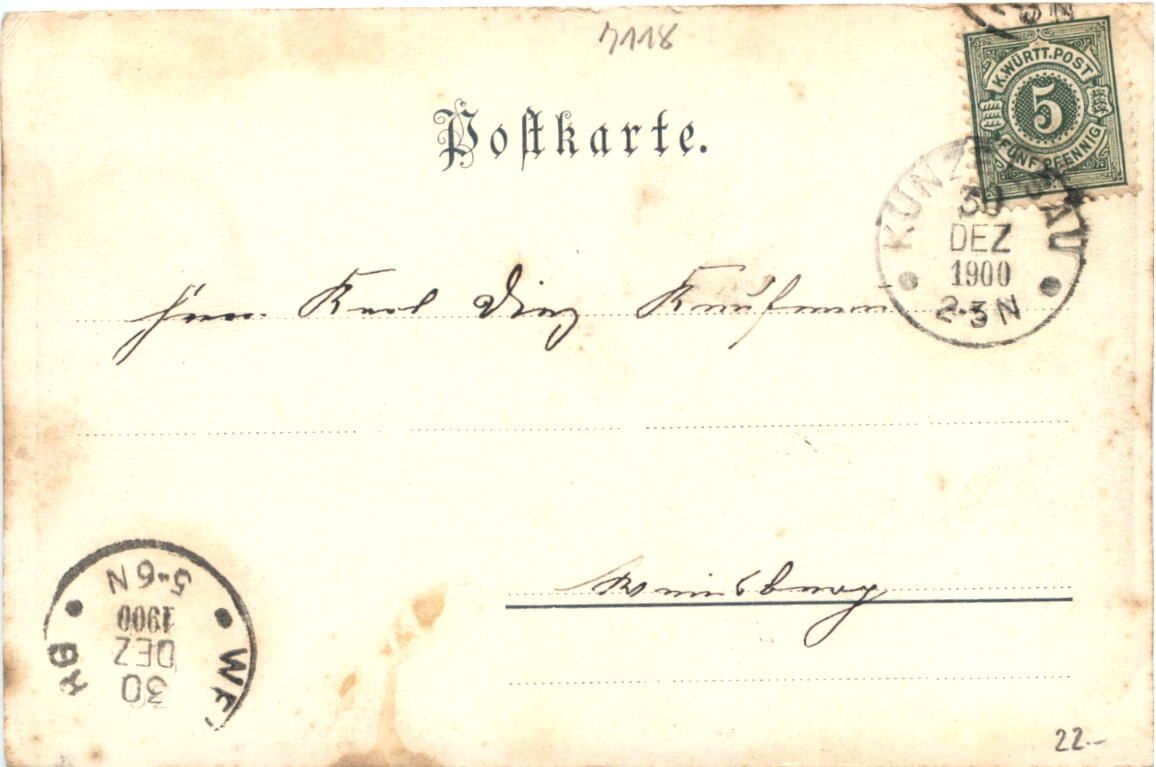 7118
Postkarte.
K. WÜRTT. POST
5
FÜNF PFENNIG
KÜNZELSAU
30
DEZ
1900
2-3N
Herrn Karl Diez Kaufmann
Weinsberg
30
DEZ
1900
5-6N
22.-